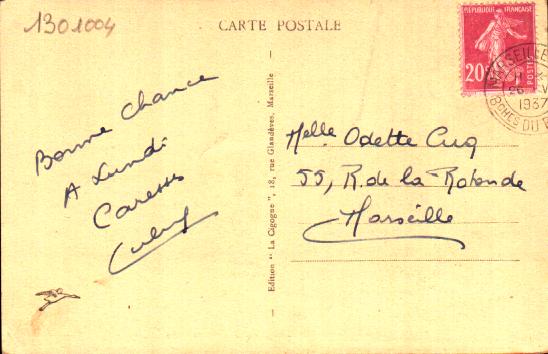 1301004
CARTE POSTALE
RÉPUBLIQUE FRANÇAISE
20c
POSTES
MARSEILLE
26
1937
BCHES DU
Bonne chance
A Lundi
Caresses
Edition " La Cigogne ", 18, rue Glandèves, Marseille
Melle Odette Cuq
55, R. de la Rotonde
Marseille